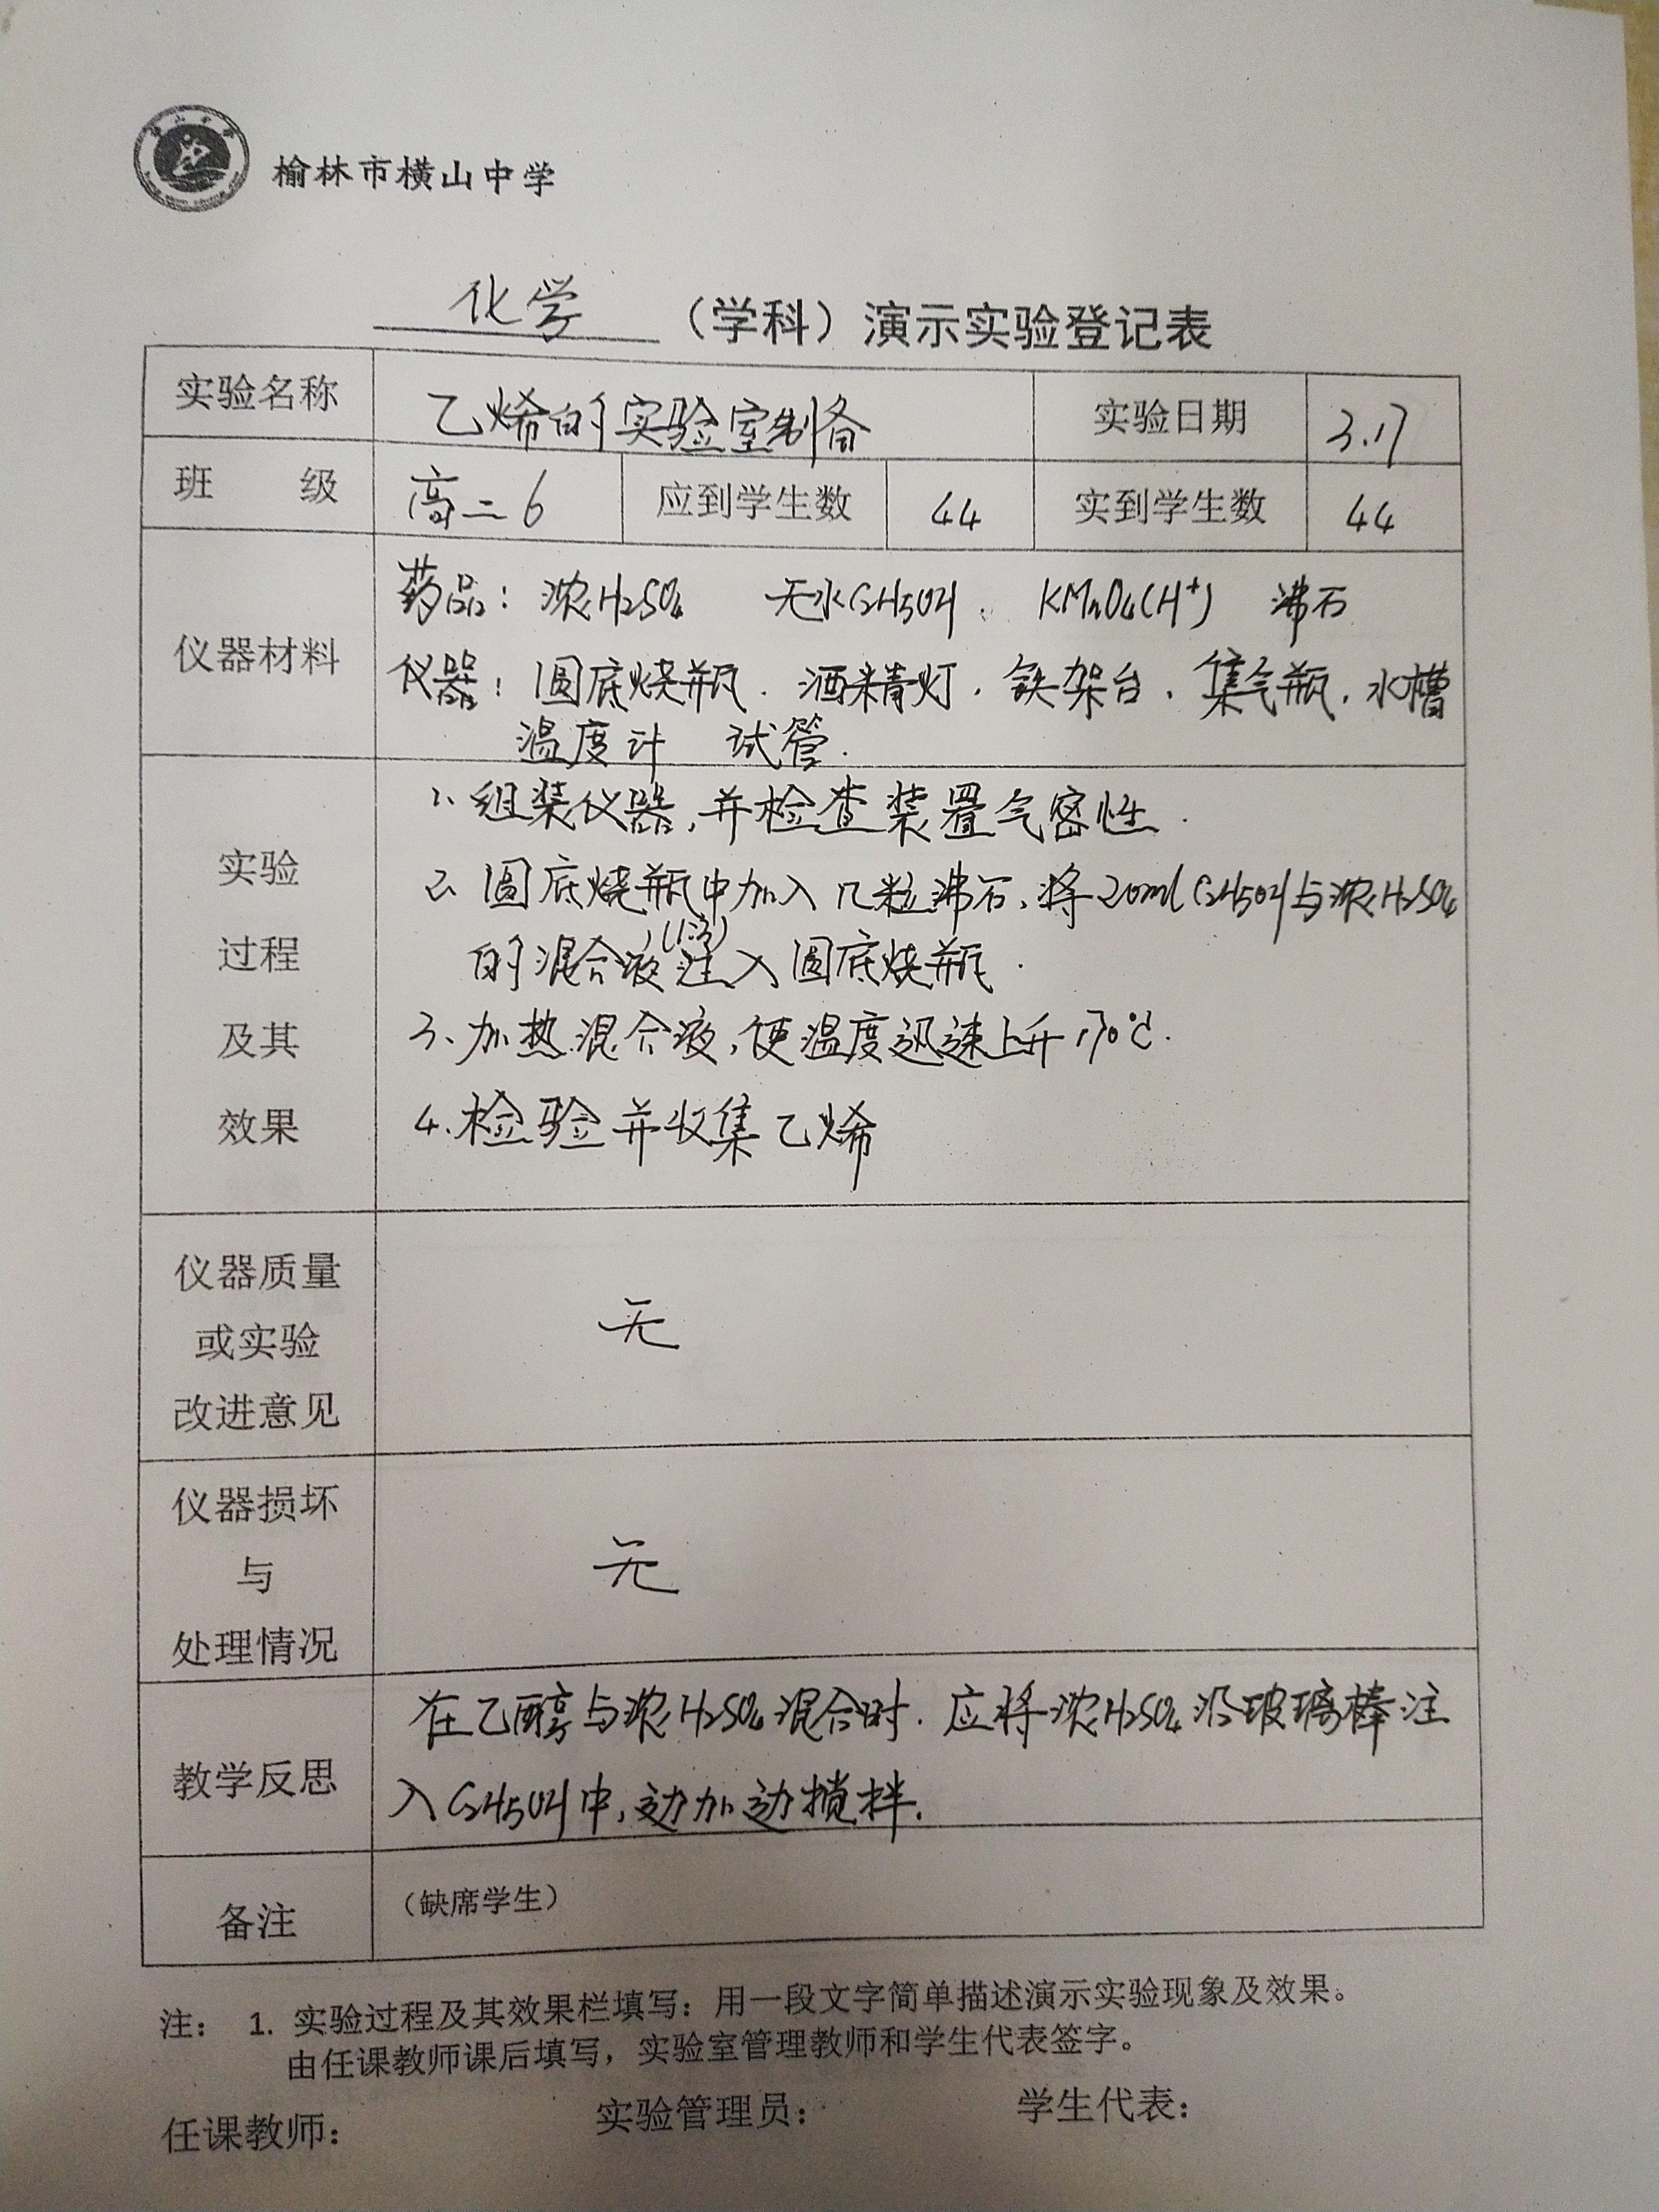 榆林市横山中学
化学（学科）演示实验登记表
实验名称 乙烯的实验室制备 实验日期 3.17
班 级 高二6 应到学生数 44 实到学生数 44
仪器材料
药品：浓H₂SO₄ 无水C₂H₅OH、KMnO₄(H⁺) 沸石
仪器：圆底烧瓶．酒精灯．铁架台．集气瓶．水槽
温度计 试管．
实验
过程
及其
效果
1、组装仪器，并检查装置气密性．
2、圆底烧瓶中加入几粒沸石，将20ml C₂H₅OH与浓H₂SO₄
(1:3)
的混合液注入圆底烧瓶．
3、加热混合液，使温度迅速上升170℃．
4．检验并收集乙烯
仪器质量
或实验
改进意见
无
仪器损坏
与
处理情况
无
教学反思
在乙醇与浓H₂SO₄混合时．应将浓H₂SO₄沿玻璃棒注
入C₂H₅OH中，边加边搅拌．
备注 （缺席学生）
注： 1. 实验过程及其效果栏填写：用一段文字简单描述演示实验现象及效果。
由任课教师课后填写，实验室管理教师和学生代表签字。
任课教师： 实验管理员： 学生代表：